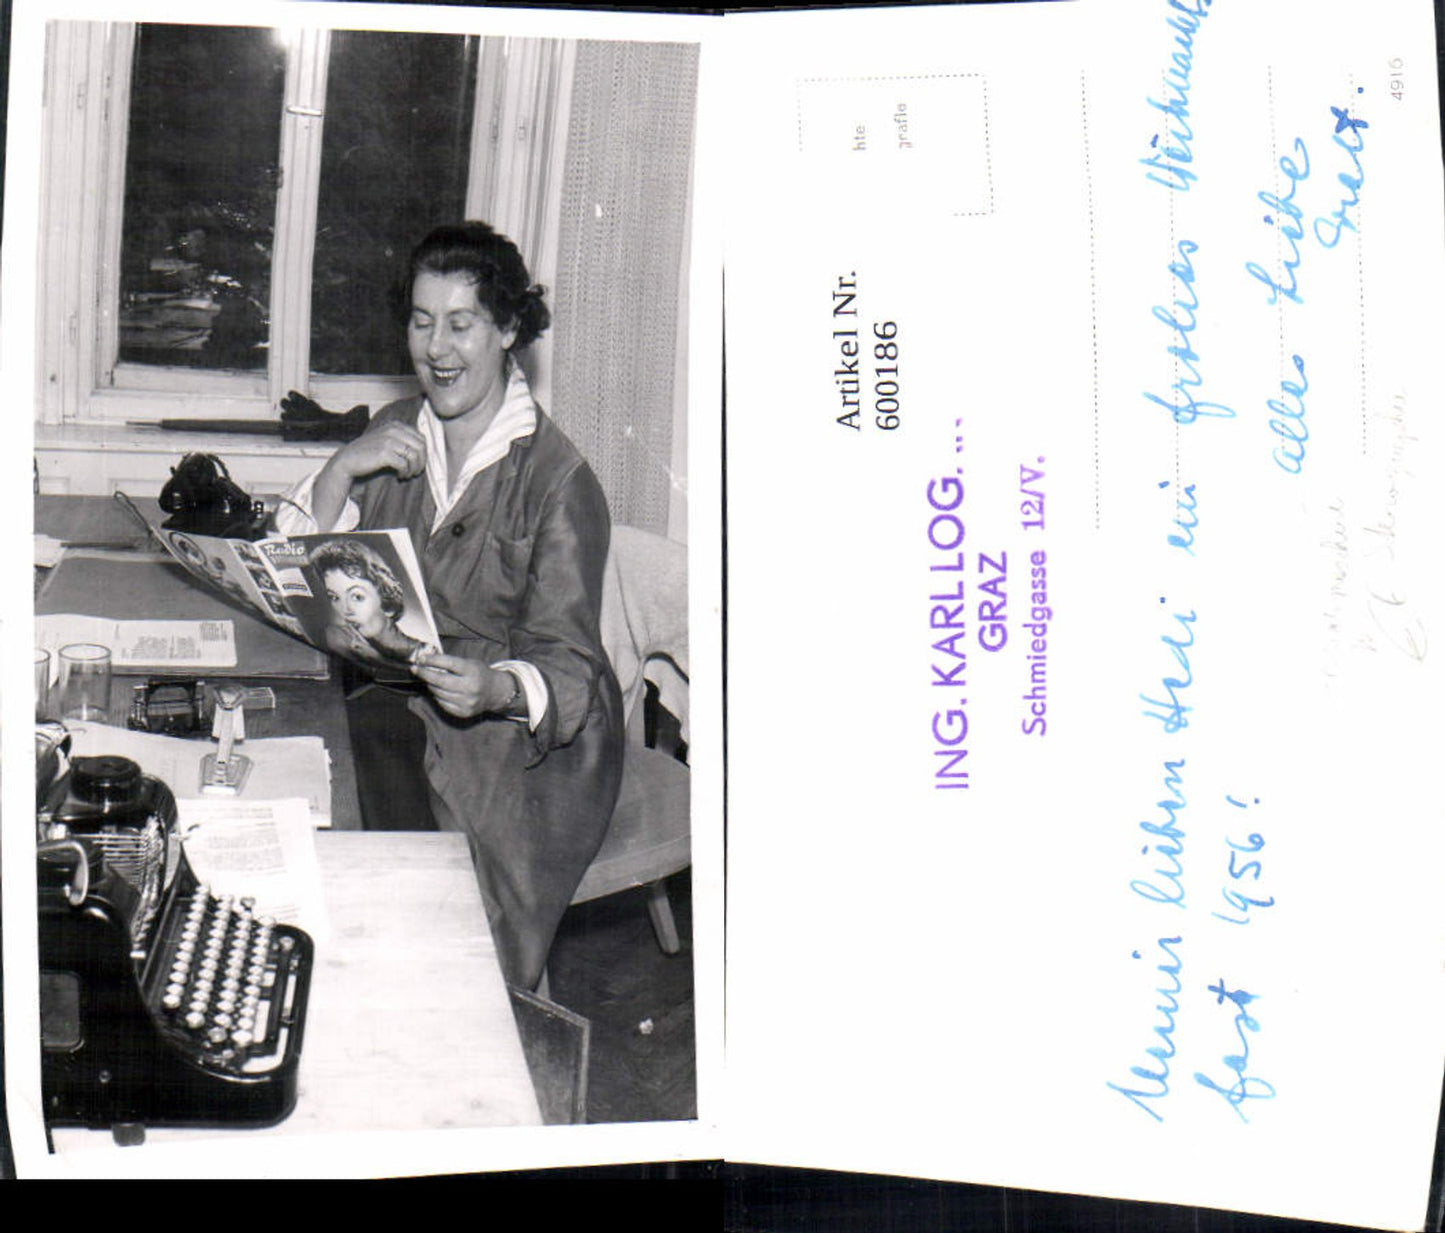 Radio
Artikel Nr.
600186
hte
grafie
ING. KARL LOG....
GRAZ
Schmiedgasse 12/V.
Meiner lieben Hedi ein frohes Weihnachts
fest 1956!
alles Liebe
4916